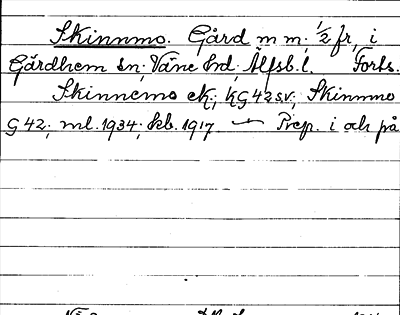 Skinnmo. Gård m m; 1/2 fr, i
Gärdhem sn; Väne hd; Älfsb. l. Forts.
Skinnemo ek; kG42sv; Skinnmo
G42; ml. 1934; kb. 1917 — Prep. i och på